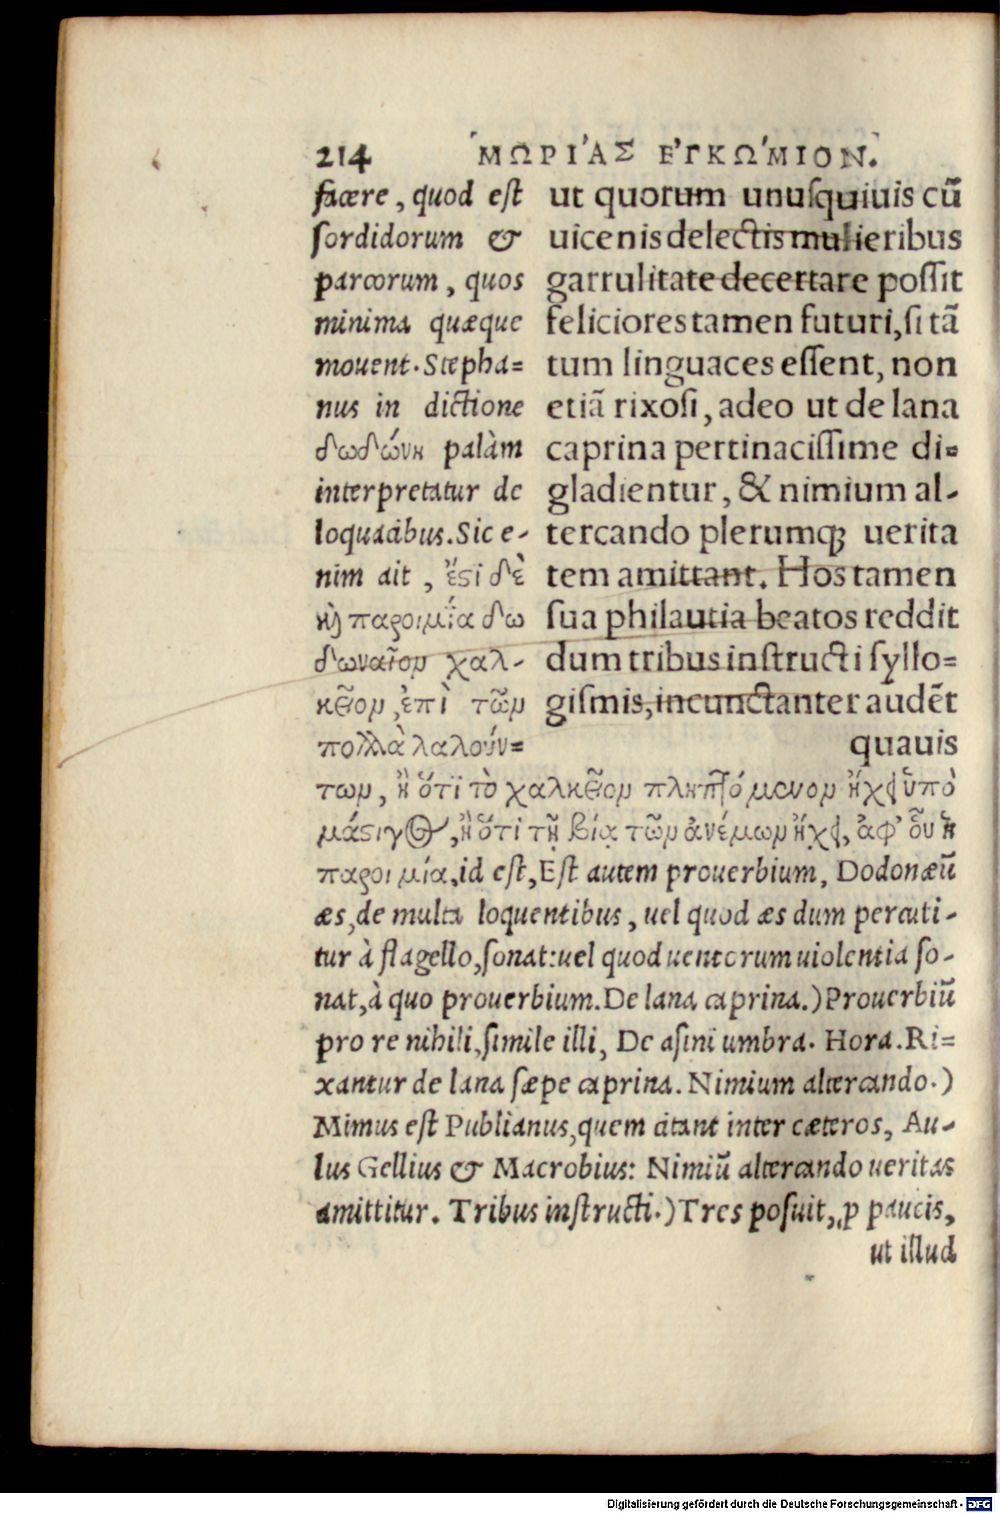 214 ΜΩΡΙ'ΑΣ ΕΓΚΩ'ΜΙΟΝ.
ut quorum unuſquiuis cũ
uicenis delectis mulieribus
garrulitate decertare poſſit
feliciores tamen futuri, ſi tã
tum linguaces eſſent, non
etiã rixoſi, adeo ut de lana
caprina pertinaciſſime di-
gladientur, & nimium al-
tercando plerumq; uerita
tem amittant. Hos tamen
ſua philautia beatos reddit
dum tribus inſtructi ſyllo-
giſmis, incunctanter audẽt
quauis
facere, quod eſt
ſordidorum &
parcorum, quos
minima quæque
mouent. Stepha-
nus in dictione
δωδώνη palàm
interpretatur de
loquacibus. Sic e-
nim ait, ἔϛι δὲ
ϗ παροιμία δω
δωναῖον χαλ-
κεῖον, ἐπὶ τῶν
πολλὰ λαλούν-
των, ἢ ὅτι τὸ χαλκεῖον πληττόμενον ἠχεῖ ὑπὸ
μάϛιγος, ἢ ὅτι τῇ βίᾳ τῶν ἀνέμων ἠχεῖ, ἀφ' οὗ ἡ
παροιμία, id eſt, Eſt autem prouerbium, Dodonæũ
æs, de multa loquentibus, uel quod æs dum percuti-
tur à flagello, ſonat: uel quod uentorum uiolentia ſo-
nat, à quo prouerbium. De lana caprina.) Prouerbiũ
pro re nihili, ſimile illi, De aſini umbra. Hora. Ri-
xantur de lana ſæpe caprina. Nimium altercando.)
Mimus eſt Publianus, quem citant inter cæteros, Au-
lus Gellius & Macrobius: Nimiũ altercando ueritas
amittitur. Tribus inſtructi.) Tres poſuit, ꝓ paucis,
ut illud
Digitalisierung gefördert durch die Deutsche Forschungsgemeinschaft - DFG